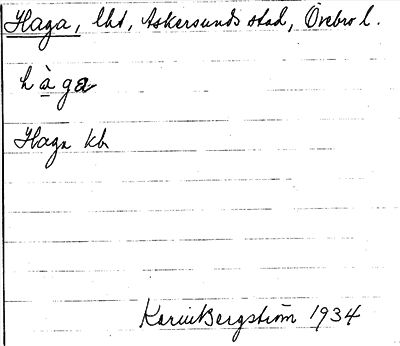 Haga, lht, Askersunds stad, Örebro l.
hàga
Haga kb
Karin Bergström 1934